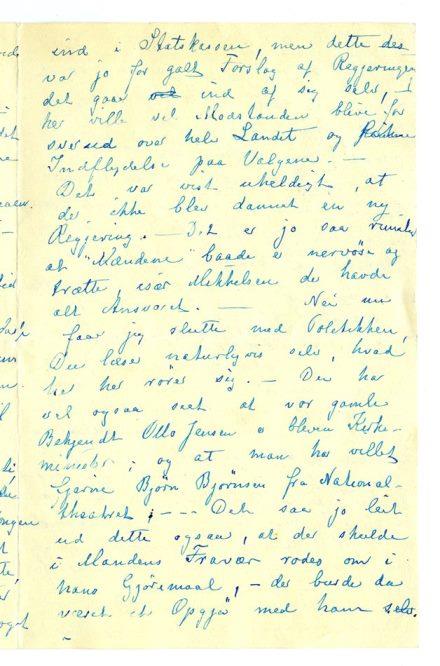 ind i Statskassen, men dette des
var jo for galt Forslag af Regjeringen
det gaar ind af sig selv, –
her vilde vel Modstanden blive for
svær ud over hele Landet og
Indflydelse paa Valgene. —
Det var vist uheldigt, at
der ikke blev dannet en ny
Regjering. — 3,2 er jo saa
at "Mændene" baade er nervøse og
trætte, især Mikkelsen der havde
alt Ansvaret. — Nei nu
faar jeg slutte med Politikken,
Du læser naturligvis selv, hvad
her rører sig. — Du har
vel ogsaa seet at vor gamle
Bekjendt Otto Jensen er bleven Kirke-
minister; og at man har villet
fjerne Bjørn Bjørnson fra National-
theatret; --- Det saa jo leit
ud dette ogsaa, at der skulde
i Mandens Fravær rodes om i
hans Gjøremaal, – der burde da
været et Opgjør med ham selv.